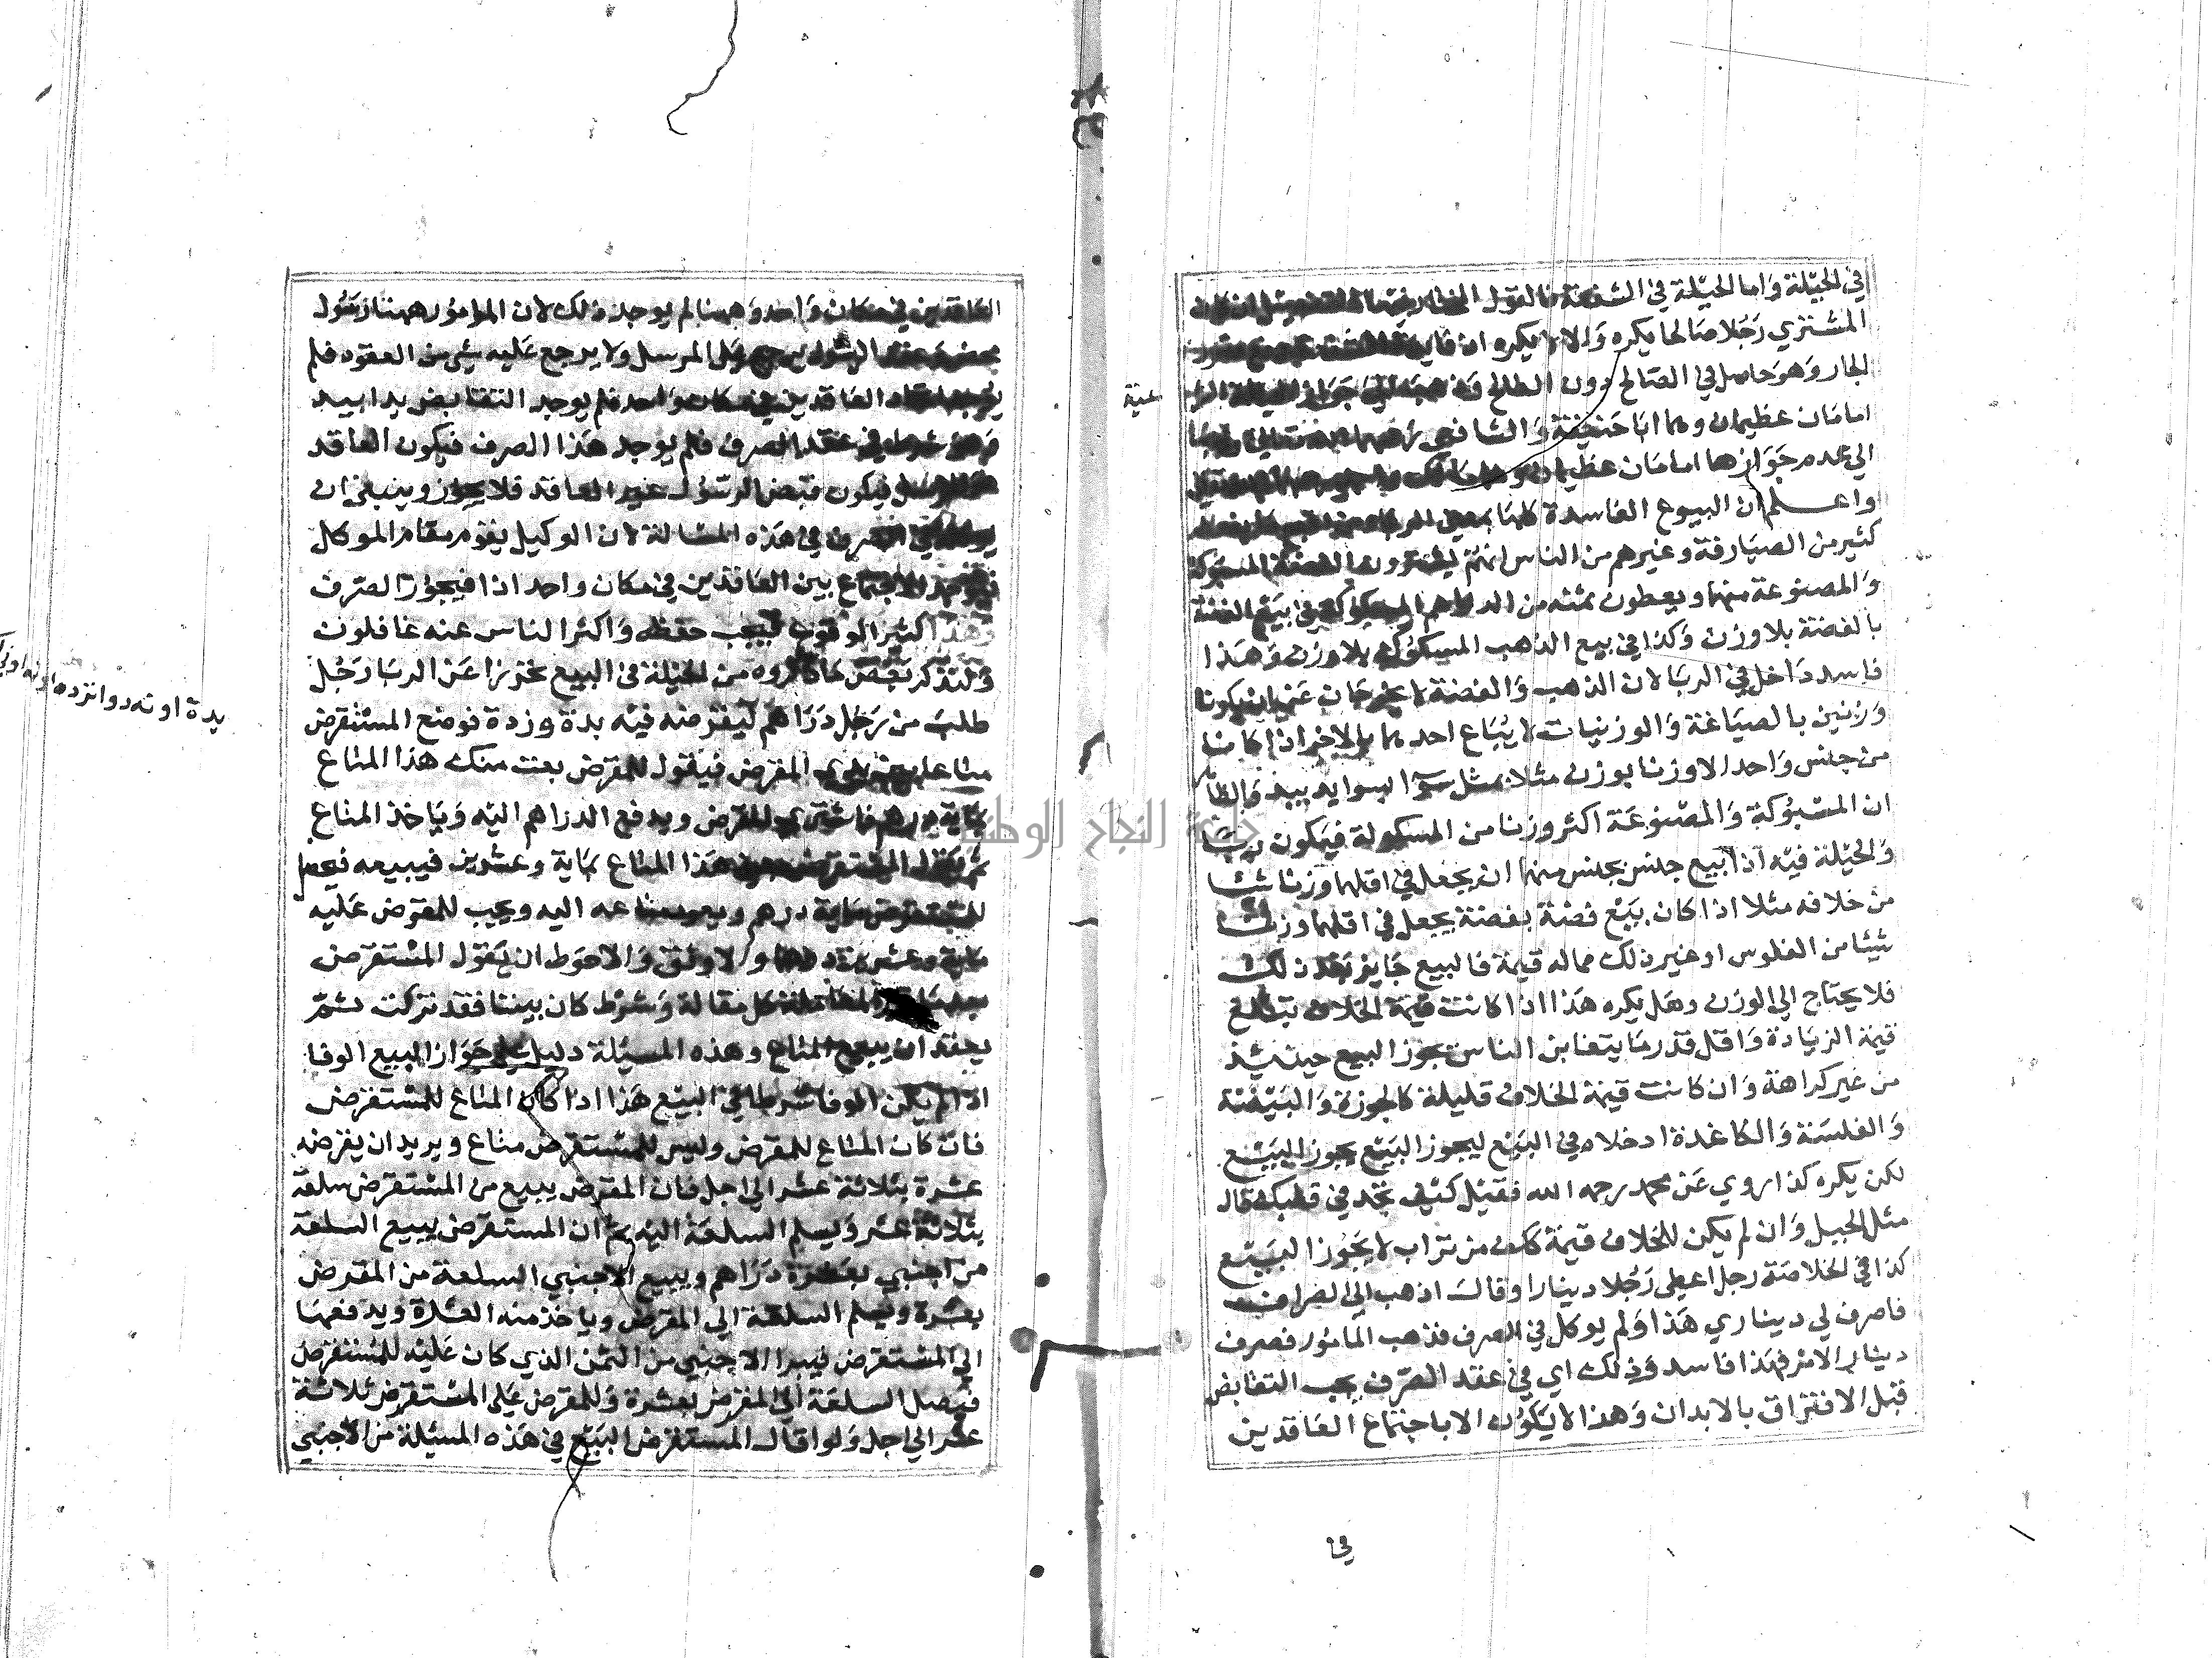 في الحيلة واما الحيلة في الشفعة فالقول المختار فيها
المشتري رجلا صالحا يكره والا لا يكره لان فايدة
الجار وهو حاصل في الصالح دون الطالح
عنية
امامان عظيمان وهما ابا حنيفة والشافعي رحمهما الله تعالى
الي عدم جوازها امامان عظيمان وهما مالك
واعلم ان البيوع الفاسدة كلها
كثير من الصيارفة وغيرهم من الناس انهم يشترون الفضة المسبوكة
والمصنوعة منها ويعطون ثمنه من الدراهم المسكوكة في بيع الفضة
بالفضة بلا وزن وكذا في بيع الذهب المسكوك بلا وزن وهذا
فاسد داخل في الربا لان الذهب والفضة لا يخرجان عن ان يكونا
وزنين بالصياغة والوزنيات لا يباع احدهما بالاخر اذا كانتا
من جنس واحد الا وزنا بوزن مثلا بمثل سوآ بسوا يد بيد والظا
ان المسبوكة والمصنوعة اكثر وزنا من المسكوكة فيكون ربا
والحيلة فيه اذا بيع جنس بجنس منهما ان يجعل في اقلهما وزنا شيا
من خلافه مثلا اذا كان بيع فضة بفضة يجعل في اقلهما وزنا
شيئا من الفلوس او غير ذلك مما له قيمة فالبيع جايز بعد ذلك
فلا يحتاج الي الوزن وهل يكره هذا اذا كانت قيمة الخلاف تبلغ
قيمة الزيادة واقل قدر ما يتغابن الناس يجوز البيع حينئذ
من غير كراهة وان كانت قيمة الخلاف قليلة كالجوزة والبيضة
والفلسة والكاغدة ادخلا في البيع ليجوز البيع يجوز البيع
لكن يكره كذا روي عن محمد رحمه الله فقيل كيف تجد في قلبك قال
مثل الجبل وان لم يكن للخلاف قيمة ككف من تراب لا يجوز البيع
كذا في الخلاصة رجل اعطي رجلا دينارا وقال اذهب الي الصراف
فاصرف لي ديناري هذا ولم يوكل في الصرف فذهب المامور فصرف
دينار الامر فهذا فاسد وذلك اي في عقد الصرف يجب التقابض
قبل الافتراق بالابدان وهذا لا يكون الا باجتماع العاقدين
في
العاقدين في مكان واحد وههنا لم يوجد ذلك لان المامور ههنا رسول
الرسول يرجع الي المرسل ولا يرجع عليه شي من العقود فلم
يوجد اتحاد العاقدين في مكان واحد فلم يوجد التقابض يدا بيد
وهو شرط في عقد الصرف فلم يوجد هذا الصرف فيكون العاقد
هو المرسل فيكون قبض الرسول غير العاقد فلا يجوز وينبغي ان
يوكل في الصرف في هذه المسالة لان الوكيل يقوم مقام الموكل
فيوجد الاجتماع بين العاقدين في مكان واحد اذا فيجوز الصرف
وهذا كثير الوقوع فيجب حفظه واكثر الناس عنه غافلون
ولنذكر بعض ما ذكروه من الحيلة في البيع تحرزا عن الربا رجل
طلب من رجل دراهم ليقرضه فيه بدة وزدة فوضع المستقرض
يدة او ته دوانزده
متاعا بين يدي المقرض فيقول للمقرض بعت منك هذا المتاع
بماية درهم فاشتري المقرض ويدفع الدراهم اليه وياخذ المتاع
ثم يقول المستقرض هذا المتاع بماية وعشرين فيبيعه فيحصل
للمستقرض ماية درهم ويعود متاعه اليه ويجب للمقرض عليه
ماية وعشرين درهما والاوثق والاحوط ان يقول المستقرض
كل مقالة وشرط كان بيننا فقد تركت ثم
يعقد ان يبيع المتاع وهذه المسئلة دليل علي جواز البيع الوفا
اذا لم يكن الوفا شرطا في البيع هذا اذا كان المتاع للمستقرض
فان كان المتاع للمقرض وليس للمستقرض متاع ويريد ان يقرضه
عشرة بثلاثة عشر الي اجل فان المقرض يبيع من المستقرض سلعة
بثلاثة عشر ويسلم السلعة اليه ثم ان المستقرض يبيع السلعة
من اجنبي بعشرة دراهم ويبيع الاجنبي السلعة من المقرض
بعشرة ويسلم السلعة الي المقرض وياخذ منه العشرة ويدفعها
الي المستقرض فيبرا الاجنبي من الثمن الذي كان عليه للمستقرض
فيصل السلعة الي المقرض بعشرة وللمقرض علي المستقرض ثلاثة
عشر الي اجل ولو اقال المستقرض البيع في هذه المسئلة من الاجنبي
جامعة النجاح الوطنية